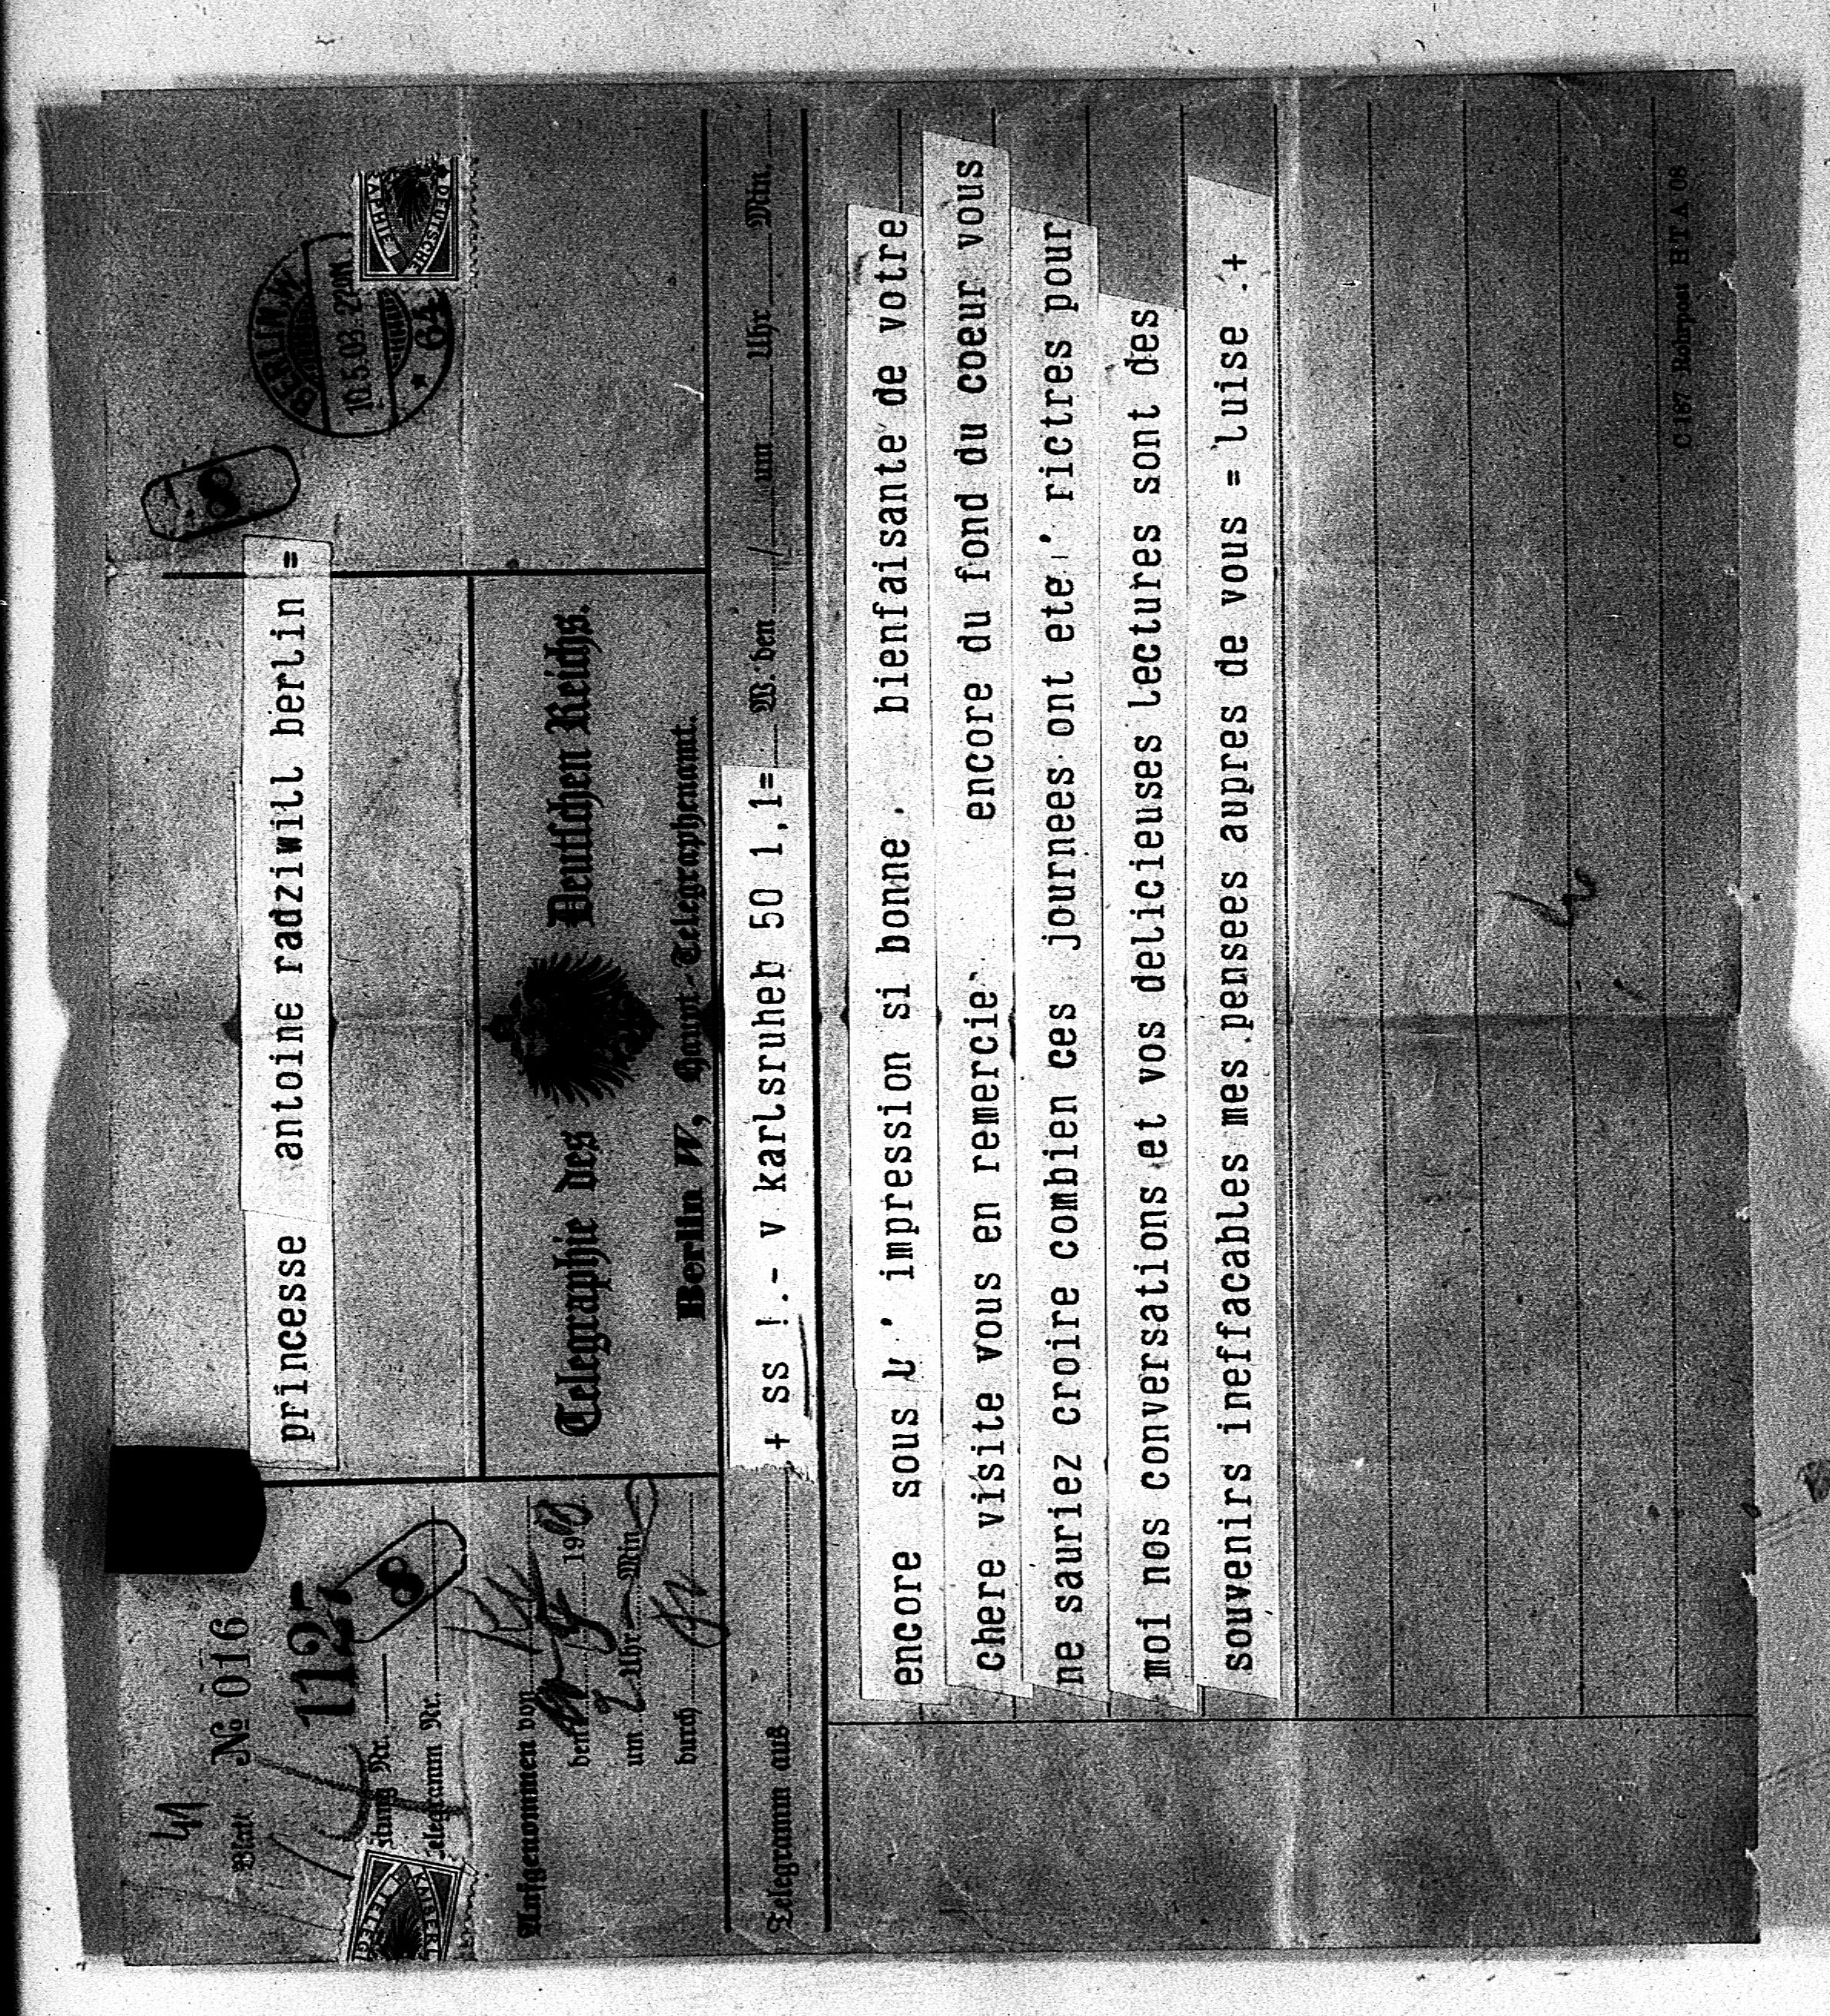 41
Blatt № 016
1127
Leitung Nr.
Telegramm Nr.
8
princesse antoine radziwill berlin =
8
BERLIN.W.
10.5.03. 220N.
* 64 *
DEUTSCHE
KAISERL
Aufgenommen von
den 19
um 2 Uhr Min
durch
Telegraphie des Deutschen Reichs.
Berlin W, Haupt-Telegraphenamt.
Telegramm aus + ss !.- v karlsruheb 50 1,1= W. den / um Uhr Min.
encore sous l' impression si bonne . bienfaisante de votre
chere visite vous en remercie encore du fond du coeur vous
ne sauriez croire combien ces journees ont ete ' rictres pour
moi nos conversations et vos delicieuses lectures sont des
souvenirs ineffacables mes pensees aupres de vous = luise .+
C 187 Rohrpost